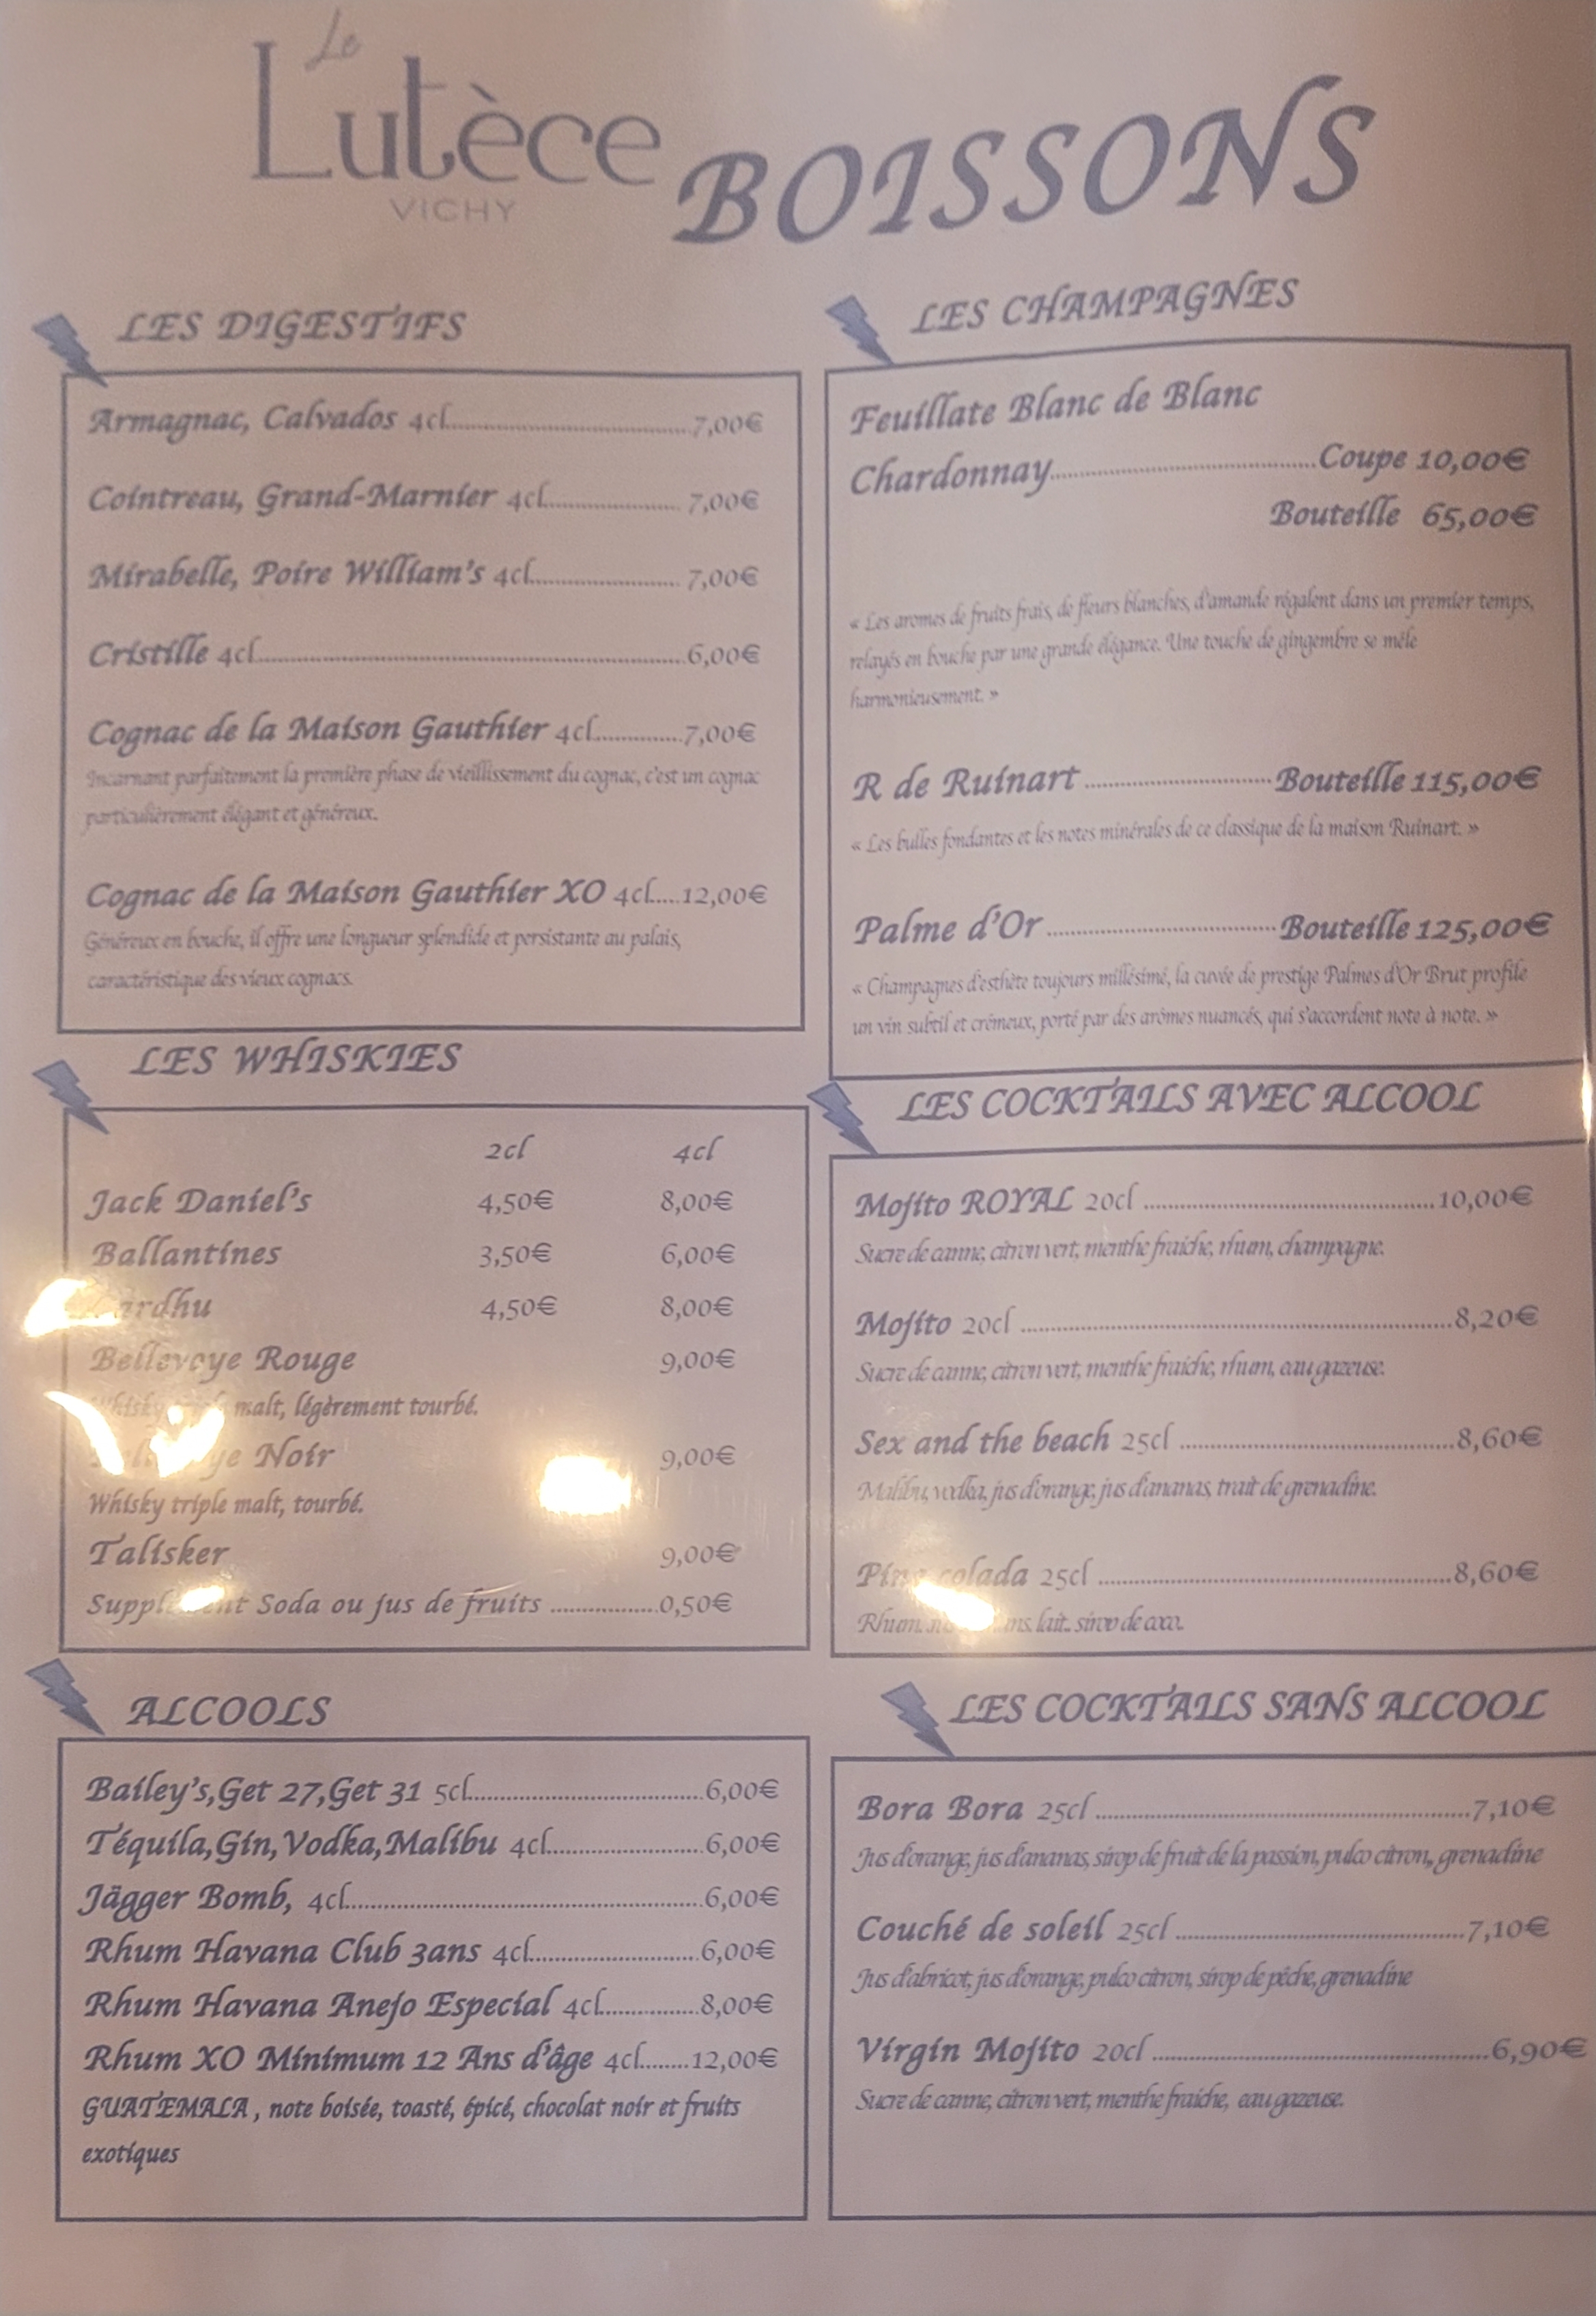 Le
Lutèce
VICHY
BOISSONS
LES DIGESTIFS
Armagnac, Calvados 4cl...............................7,00€
Cointreau, Grand-Marnier 4cl................. 7,00€
Mirabelle, Poire William's 4cl................... 7,00€
Cristille 4cl.......................................................6,00€
Cognac de la Maison Gauthier 4cl............7,00€
Incarnant parfaitement la première phase de vieillissement du cognac, c'est un cognac
particulièrement élégant et généreux.
Cognac de la Maison Gauthier XO 4cl....12,00€
Généreux en bouche, il offre une longueur splendide et persistante au palais,
caractéristique des vieux cognacs.
LES WHISKIES
2cl 4cl
Jack Daniel's 4,50€ 8,00€
Ballantines 3,50€ 6,00€
4,50€ 8,00€
Bellevoye Rouge 9,00€
malt, légèrement tourbé.
Noir 9,00€
Whisky triple malt, tourbé.
Talisker 9,00€
Soda ou jus de fruits ...............0,50€
ALCOOLS
Bailey's,Get 27,Get 31 5cl..............................6,00€
Téquila,Gin,Vodka,Malibu 4cl....................6,00€
Jägger Bomb, 4cl..............................................6,00€
Rhum Havana Club 3ans 4cl.....................6,00€
Rhum Havana Anejo Especial 4cl............8,00€
Rhum XO Minimum 12 Ans d'âge 4cl.......12,00€
GUATEMALA , note boisée, toasté, épicé, chocolat noir et fruits
exotiques
LES CHAMPAGNES
Feuillate Blanc de Blanc
Chardonnay..................................Coupe 10,00€
Bouteille 65,00€
« Les aromes de fruits frais, de fleurs blanches, d'amande régalent dans un premier temps,
relayés en bouche par une grande élégance. Une touche de gingembre se mêle
harmonieusement. »
R de Ruinart ........................Bouteille 115,00€
« Les bulles fondantes et les notes minérales de ce classique de la maison Ruinart. »
Palme d'Or .............................Bouteille 125,00€
« Champagnes d'esthète toujours millésimé, la cuvée de prestige Palmes d'Or Brut profile
un vin subtil et crémeux, porté par des arômes nuancés, qui s'accordent note à note. »
LES COCKTAILS AVEC ALCOOL
Mojito ROYAL 20cl ......................................10,00€
Sucre de canne, citron vert, menthe fraiche, rhum, champagne.
Mojito 20cl ........................................................8,20€
Sucre de canne, citron vert, menthe fraiche, rhum, eau gazeuse.
Sex and the beach 25cl ...................................8,60€
Malibu, vodka, jus d'orange, jus d'ananas, trait de grenadine.
colada 25cl ..............................................8,60€
Rhum, lait, sirop de coco.
LES COCKTAILS SANS ALCOOL
Bora Bora 25cl ................................................7,10€
Jus d'orange, jus d'ananas, sirop de fruit de la passion, pulco citron,, grenadine
Couché de soleil 25cl .....................................7,10€
Jus d'abricot, jus d'orange, pulco citron, sirop de pêche, grenadine
Virgin Mojito 20cl ...........................................6,90€
Sucre de canne, citron vert, menthe fraiche, eau gazeuse.